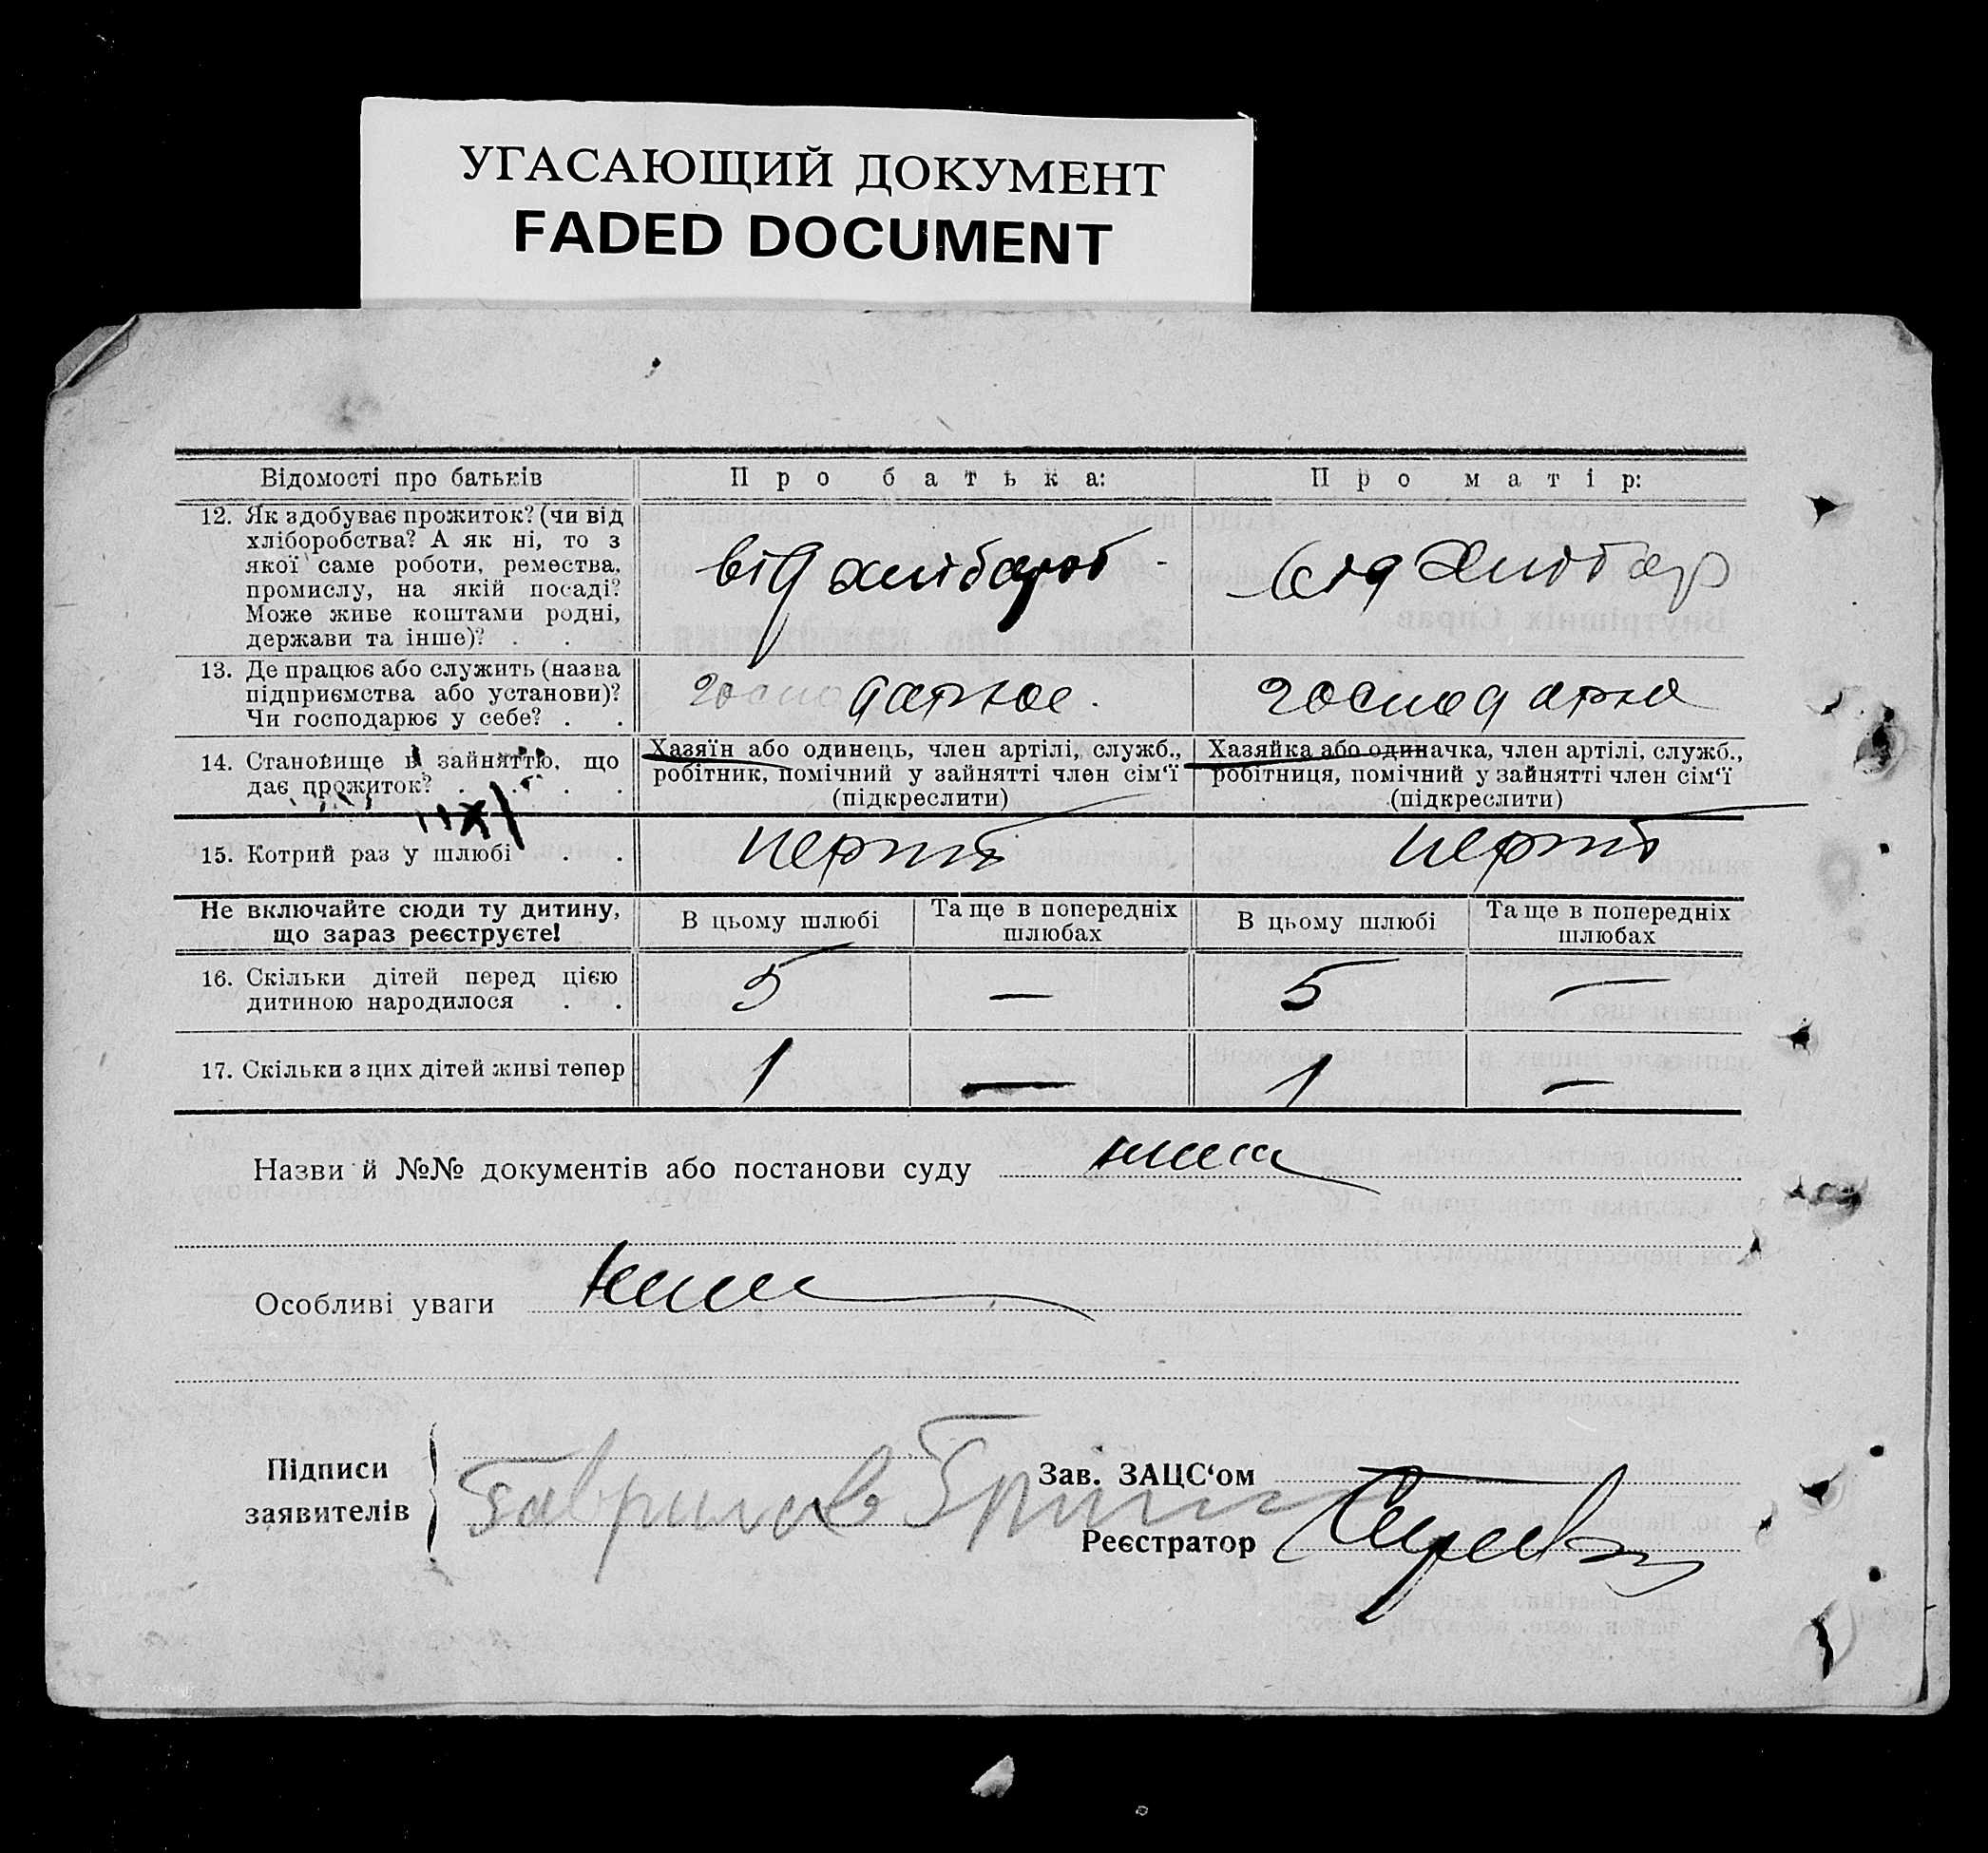 УГАСАЮЩИЙ ДОКУМЕНТ
FADED DOCUMENT
Відомості про батьків
Про батька:
Про матір:
12. Як здобуває прожиток? (чи від
хліборобства? А як ні, то з
якої саме роботи, ремества,
промислу, на якій посаді?
Може живе коштами родні,
держави та інше)? . . .
від
від
13. Де працює або служить (назва
підприємства або установи)?
Чи господарює у себе? . .
господарює.
господарює
14. Становище в зайняттю, що
дає прожиток? . . . .
Хазяїн або одинець, член артілі, служб.,
робітник, помічний у зайнятті член сім‘ї
(підкреслити)
Хазяйка або одиначка, член артілі, служб.,
робітниця, помічний у зайнятті член сім‘ї
(підкреслити)
15. Котрий раз у шлюбі . .
Не включайте сюди ту дитину,
що зараз реєструєте!
В цьому шлюбі
Та ще в попередніх
шлюбах
В цьому шлюбі
Та ще в попередніх
шлюбах
16. Скільки дітей перед цією
дитиною народилося . .
5
—
5
—
17. Скільки з цих дітей живі тепер
1
—
1
—
Назви й №№ документів або постанови суду
Особливі уваги
Підписи
заявителів
Гаврилов
Зав. ЗАЦС‘ом
Реєстратор